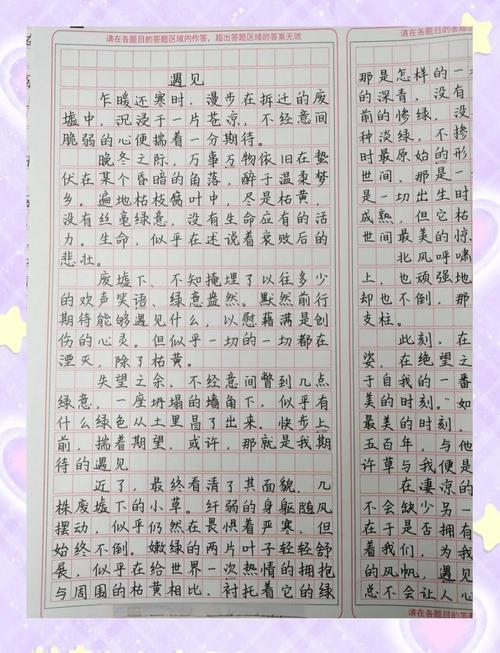 请在各题目的答题区域内作答，超出答题区域的答案无效
遇见
乍暖还寒时，漫步在拆迁的废
墟中，沉浸于一片苍凉，不经意间
脆弱的心便揣着一分期待。
晚冬之际，万事万物依旧在蛰
伏在某个昏暗的角落，醉于温柔梦
乡。遍地枯枝腐叶中，尽是枯黄，
没有丝毫绿意，没有生命应有的活
力。生命，似乎在述说着衰败后的
悲壮。
废墟下、不知掩埋了以往多少
的欢声笑语、绿意盎然。默然前行
期待能够遇见什么，以慰藉满是创
伤的心灵。但似乎一切的一切都在
湮灭，除了枯黄。
失望之余，不经意间瞥到几点
绿意，一座坍塌的墙角下，似乎有
什么绿色从土里冒了出来。快步上
前，揣着期望，或许，那就是我期
待的遇见
近了，最终看清了其面貌、几
株废墟下的小草。纤弱的身躯随风
摆动，似乎仍然在畏惧着严寒，但
始终不倒。嫩绿的两片叶子轻轻舒
展，似乎在给世界一次热情的拥抱
与周围的枯黄相比，衬托着它的绿
请在各题目的答
那是怎样的一
的深青，没有
前的惨绿，没
种淡绿，不掺
时最原始的形
世间，那是一
是一切出生时
成熟，但它枯
世间最美的惊
北风呼啸
上，也顽强地
却也不倒，那
支柱。
此刻，在
姿，在绝望之
于自我的一番
美的时刻。"如
最美的时刻，
五百年，与他
许草与我便是
在凄凉的
不会缺少另一
在于是否拥有
着我们，为我
的风帆，遇见
总不会让人心
请在各题目的答